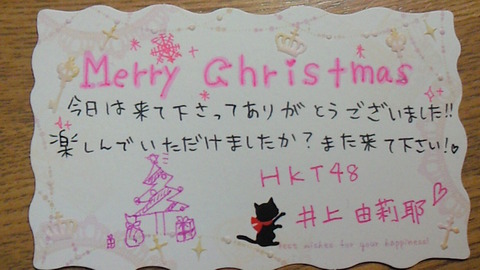 Merry Christmas
今日は来て下さってありがとうございました!!
楽しんでいただけましたか?また来て下さい!
HKT48
井上由莉耶
Best wishes for your happiness!